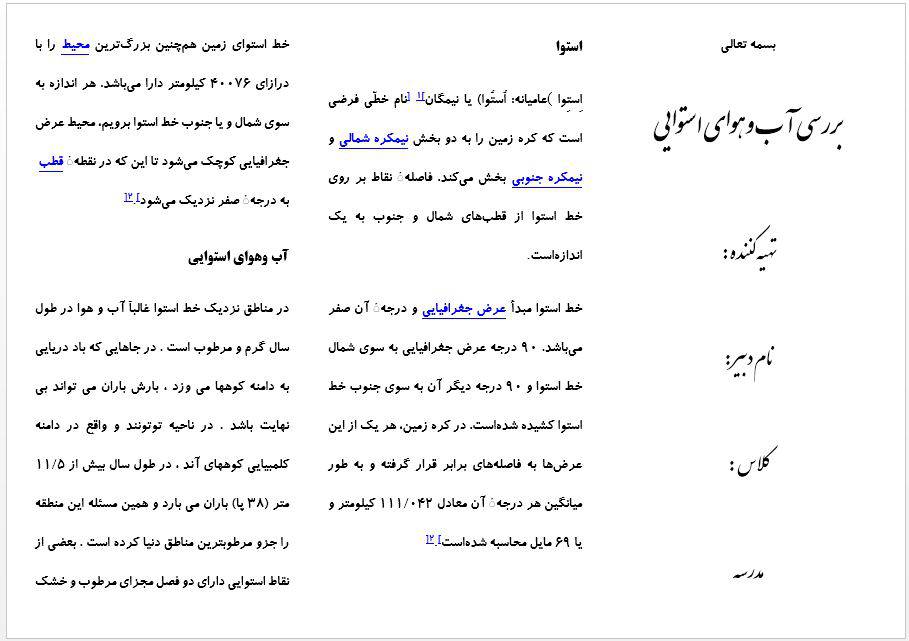 بسمه تعالی
بررسی آب و هوای استوایی
تهیه کننده :
نام دبیر:
کلاس :
مدرسه
استوا
اِستِوا )عامیانه: اُستُوا) یا نیمگان[۱ [نام خطّی فرضی
است که کره زمین را به دو بخش نیمکره شمالی و
نیمکره جنوبی بخش می‌کند. فاصلهٔ نقاط بر روی
خط استوا از قطب‌های شمال و جنوب به یک
اندازه‌است.
خط استوا مبدأ عرض جغرافیایی و درجهٔ آن صفر
می‌باشد. ۹۰ درجه عرض جغرافیایی به سوی شمال
خط استوا و ۹۰ درجه دیگر آن به سوی جنوب خط
استوا کشیده شده‌است. در کره زمین، هر یک از این
عرض‌ها به فاصله‌های برابر قرار گرفته و به طور
میانگین هر درجهٔ آن معادل ۱۱۱/۰۴۲ کیلومتر و
یا ۶۹ مایل محاسبه شده‌است.[۲]
خط استوای زمین هم‌چنین بزرگ‌ترین محیط را با
درازای ۴۰۰۷۶ کیلومتر دارا می‌باشد. هر اندازه به
سوی شمال و یا جنوب خط استوا برویم، محیط عرض
جغرافیایی کوچک می‌شود تا این که در نقطهٔ قطب
به درجهٔ صفر نزدیک می‌شود.[۲]
آب وهوای استوایی
در مناطق نزدیک خط استوا غالباً آب و هوا در طول
سال گرم و مرطوب است . در جاهایی که باد دریایی
به دامنه کوهها می وزد ، بارش باران می تواند بی
نهایت باشد . در ناحیه توتونند و واقع در دامنه
کلمبیایی کوههای آند ، در طول سال بیش از ۱۱/۵
متر (۳۸ پا) باران می بارد و همین مسئله این منطقه
را جزو مرطوبترین مناطق دنیا کرده است . بعضی از
نقاط استوایی دارای دو فصل مجزای مرطوب و خشک